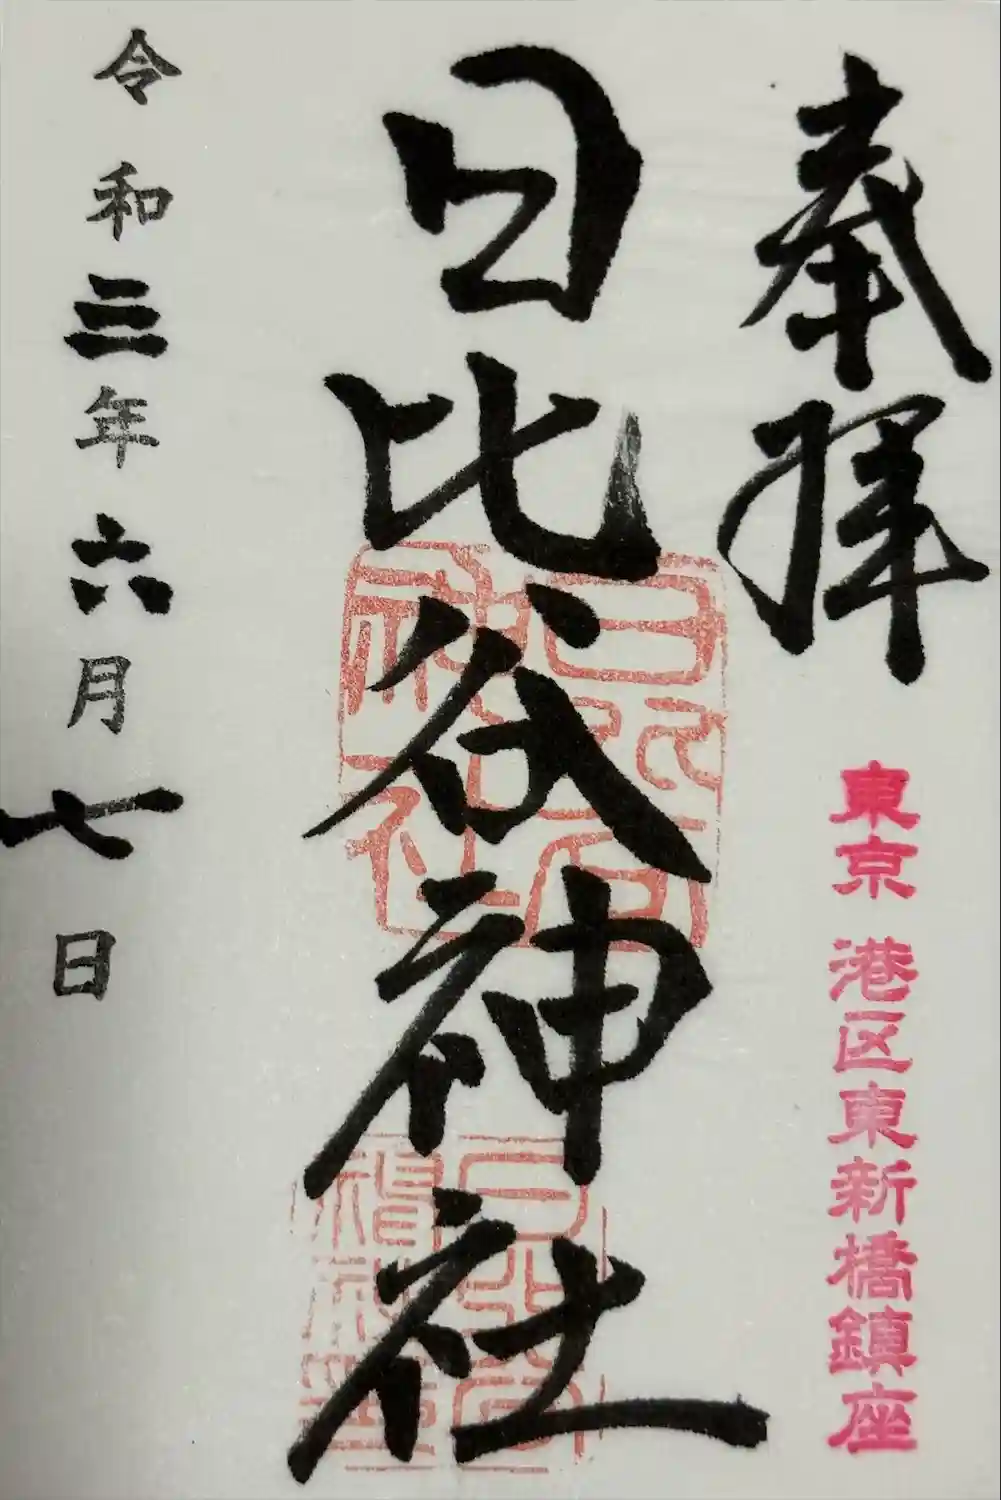 奉拝
東京 港区東新橋鎮座
日比谷神社
日比谷神社
令和三年六月七日